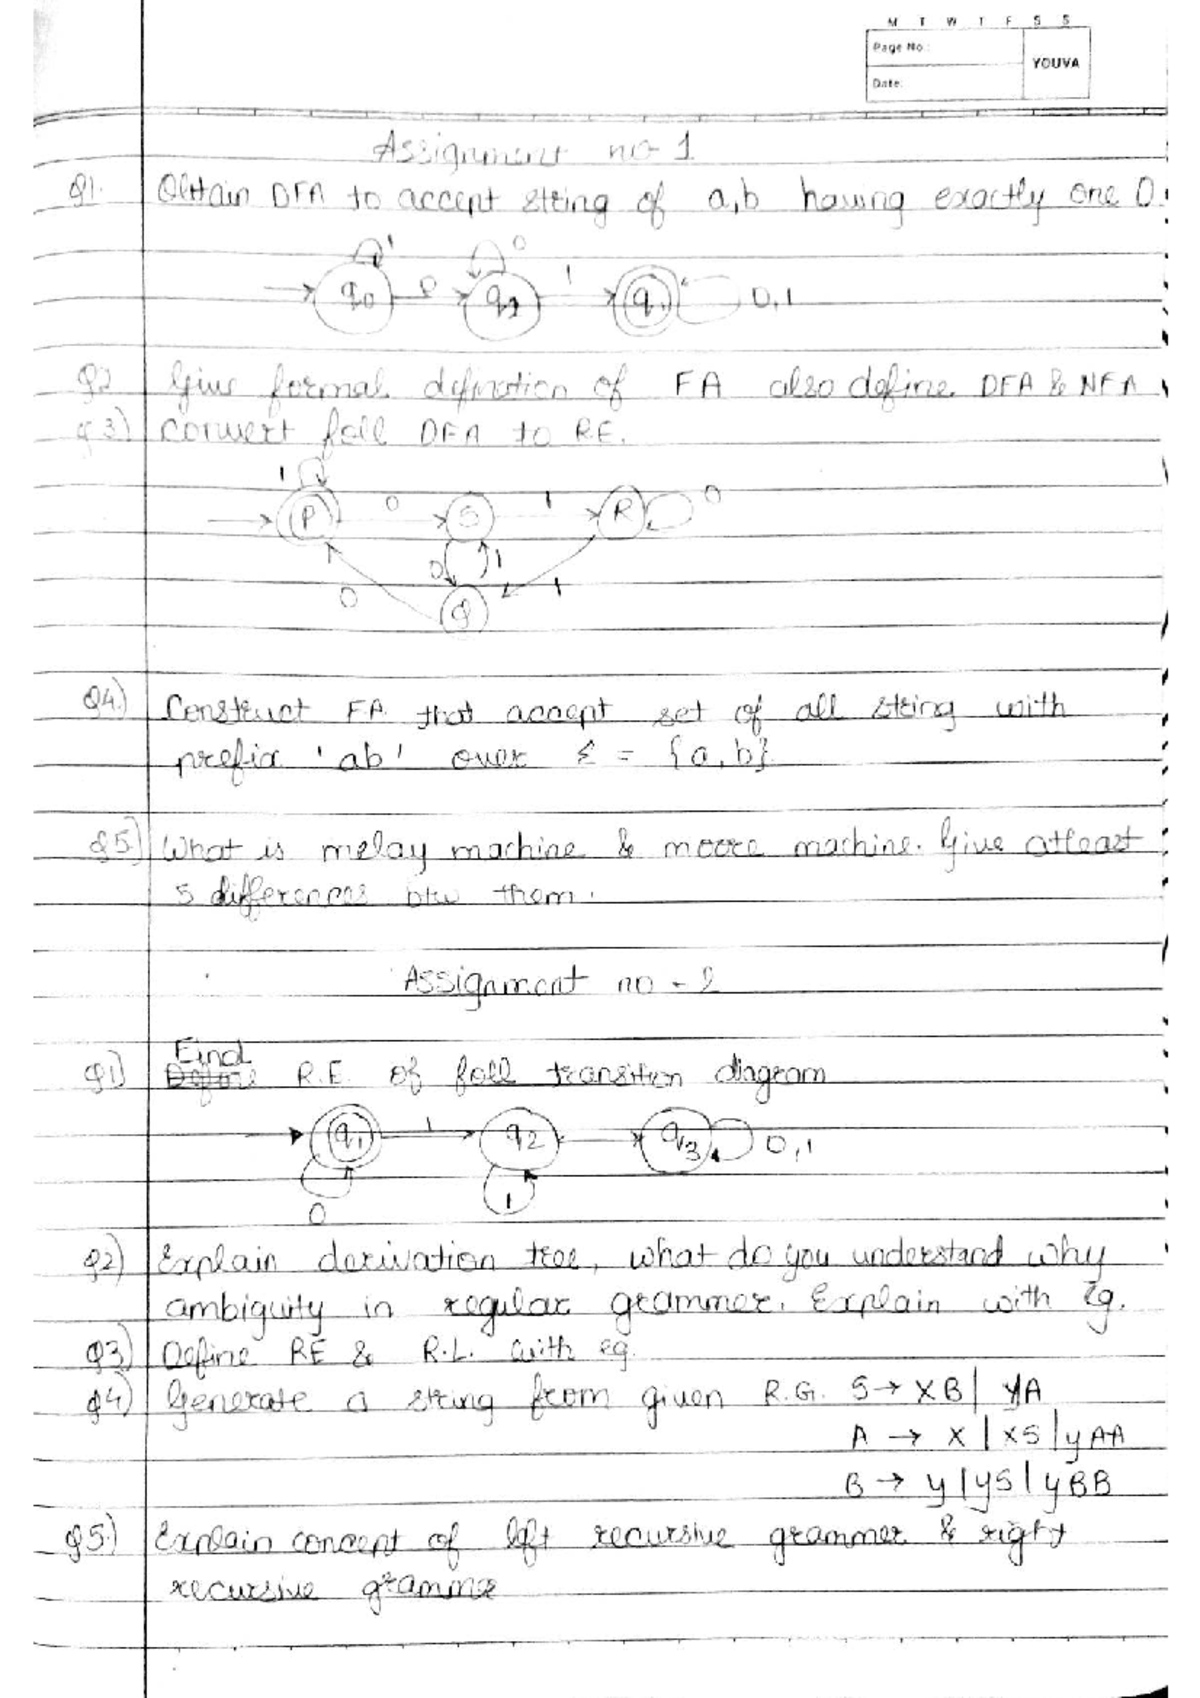 M T W T F S S
Page No.:
YOUVA
Date:
Assignment no-1
Q1. Obtain DFA to accept string of a,b having exactly one 0.
1 0
q0 0 q2 1 q1 0,1
Q2 Give formal defination of FA also define DFA & NFA
Q3) Convert foll DFA to RE.
1
P 0 S 1 R 0
0 1
0 Q 1
Q4.) Construct FA that accept set of all string with
prefix 'ab' over Σ = {a,b}
Q5.) What is melay machine & moore machine. Give atleast
5 differences btw them.
Assignment no - 2
Find
Q1) Define R.E. of foll transition diagram
q1 1 q2 q3 0,1
0 1
Q2) Explain derivation tree, what do you understand why
ambiguity in regular grammer. Explain with Eg.
Q3) Define RE & R.L. with eg.
Q4) Generate a string from given R.G. S → XB | yA
A → X | XS | yAA
B → y | yS | yBB
Q5.) Explain concept of left recursive grammer & right
recursive grammer